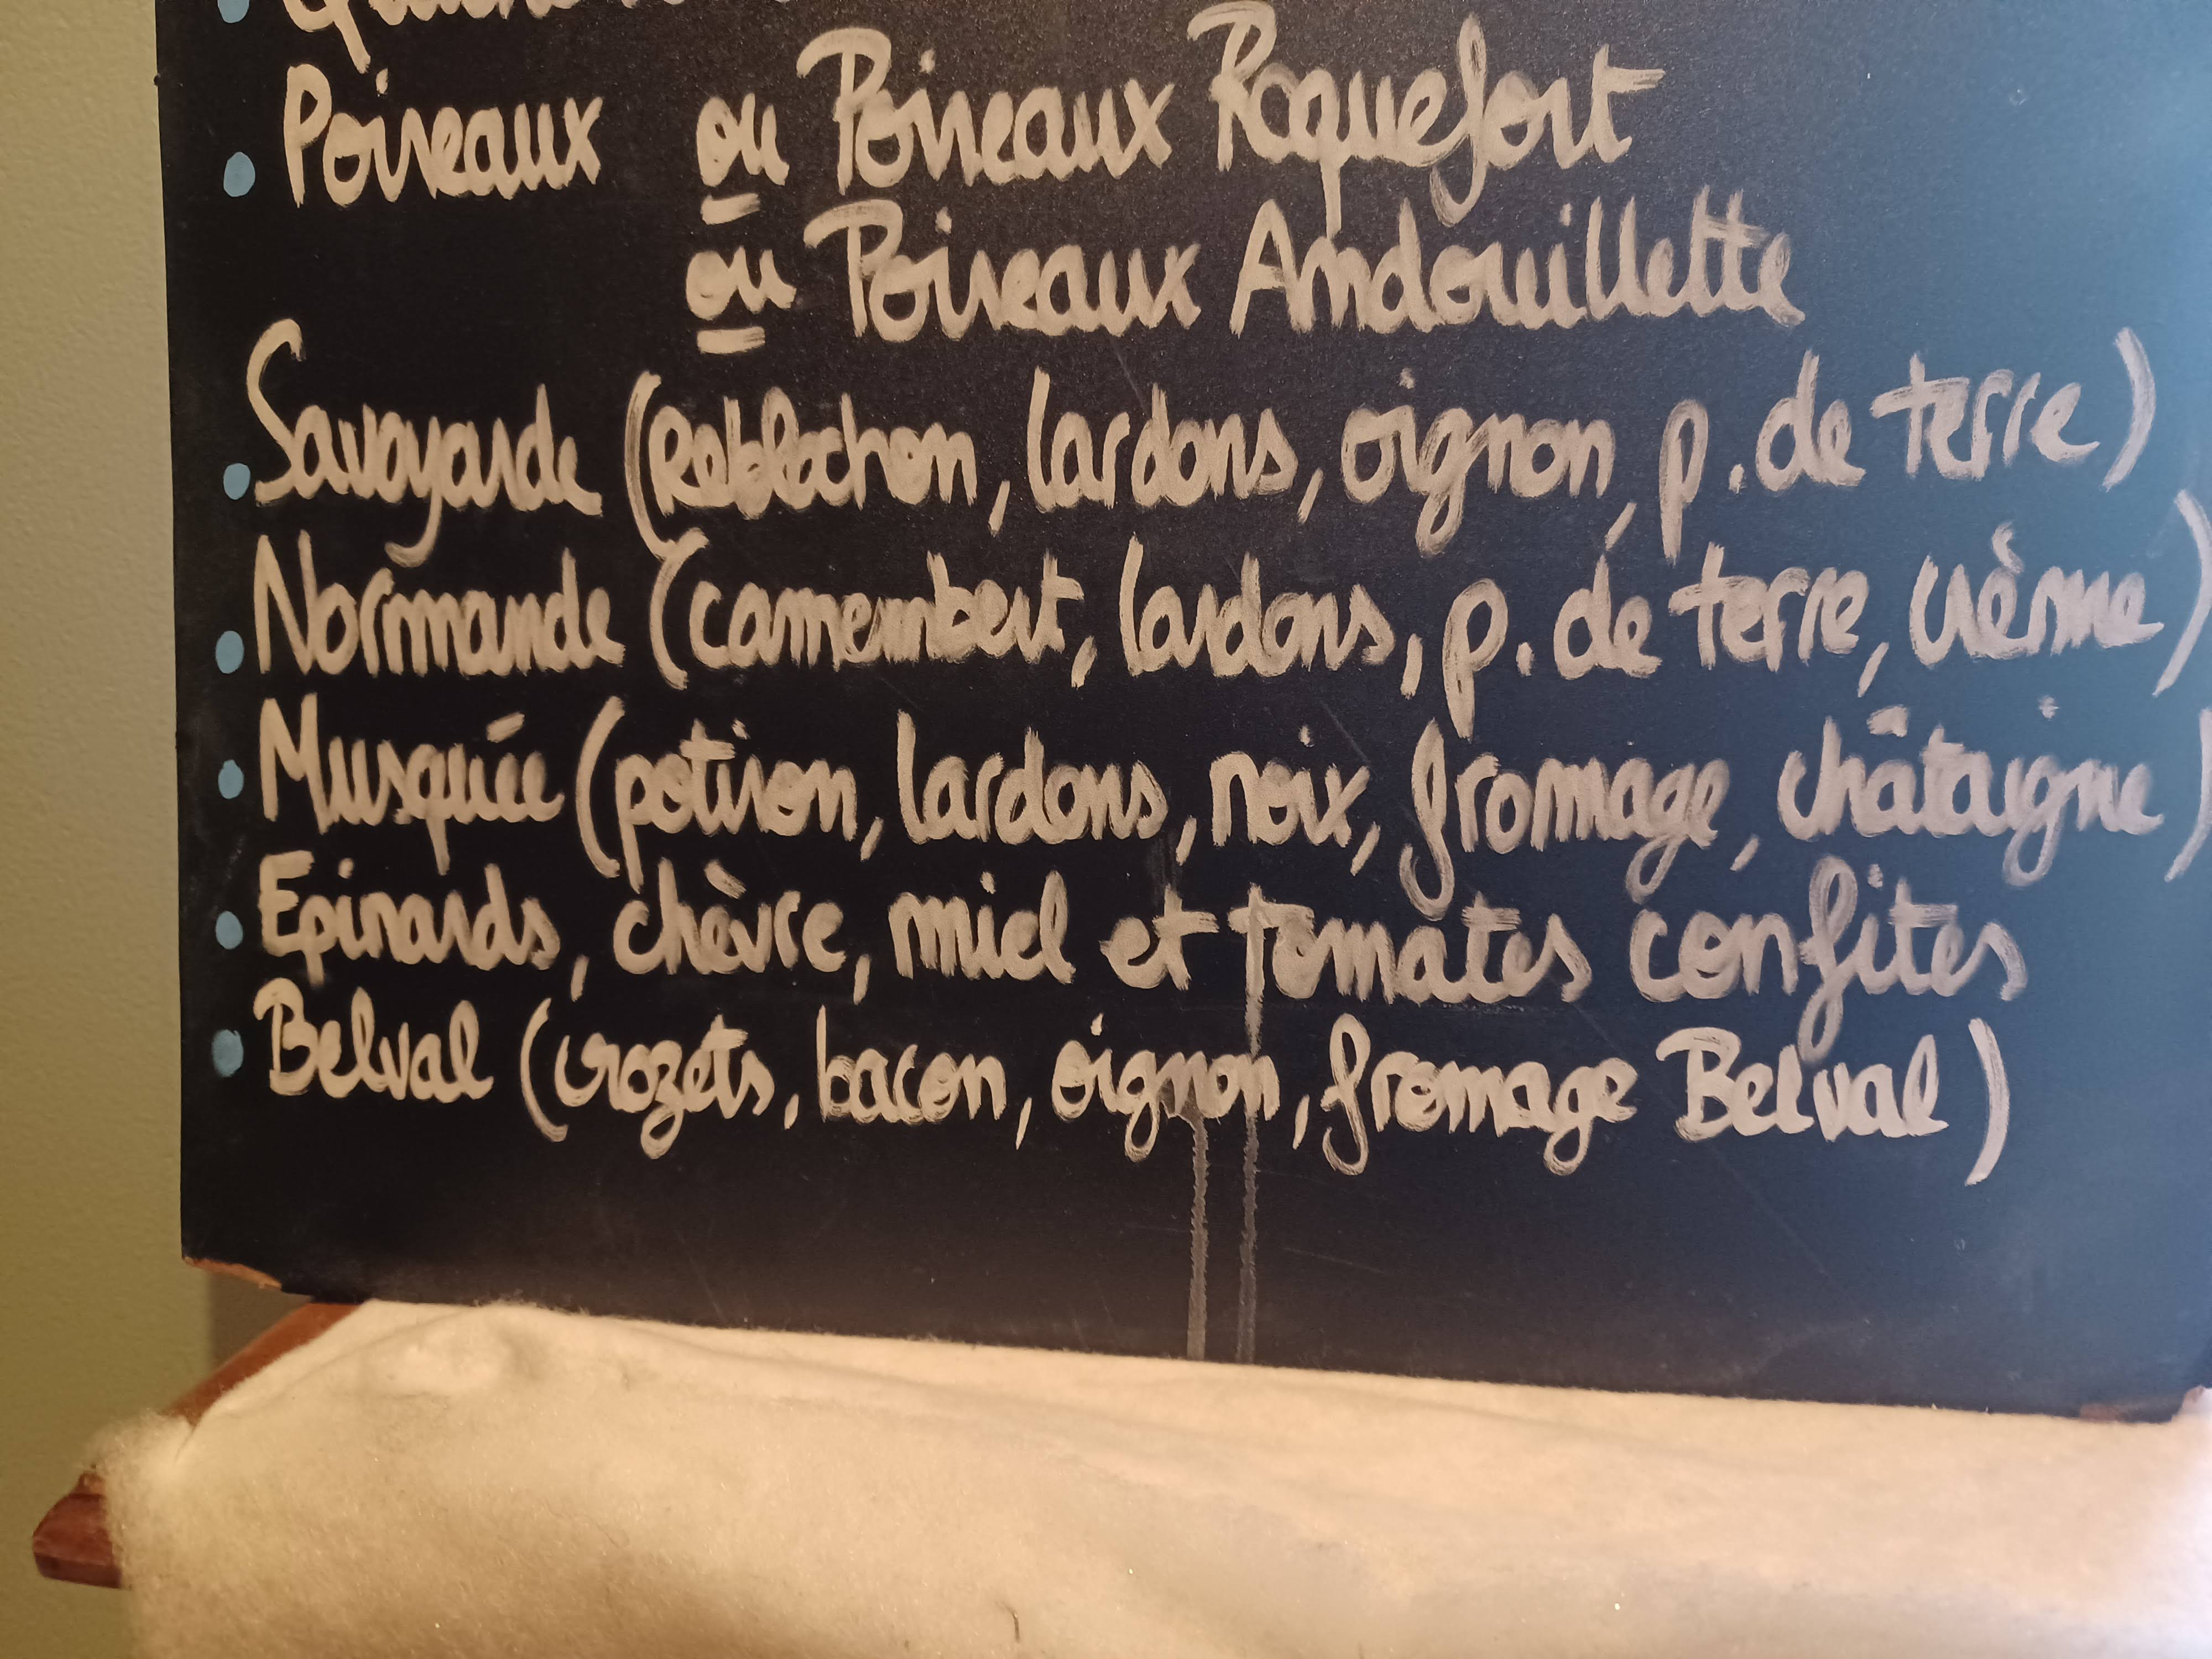 • Poireaux ou Poireaux Roquefort
ou Poireaux Andouillette
• Savoyarde (Reblochon, lardons, oignon, p. de terre)
• Normande (camembert, lardons, p. de terre, crème)
• Musquée (potiron, lardons, noix, fromage, châtaigne)
• Epinards, chèvre, miel et tomates confites
• Belval (crozets, bacon, oignon, fromage Belval)